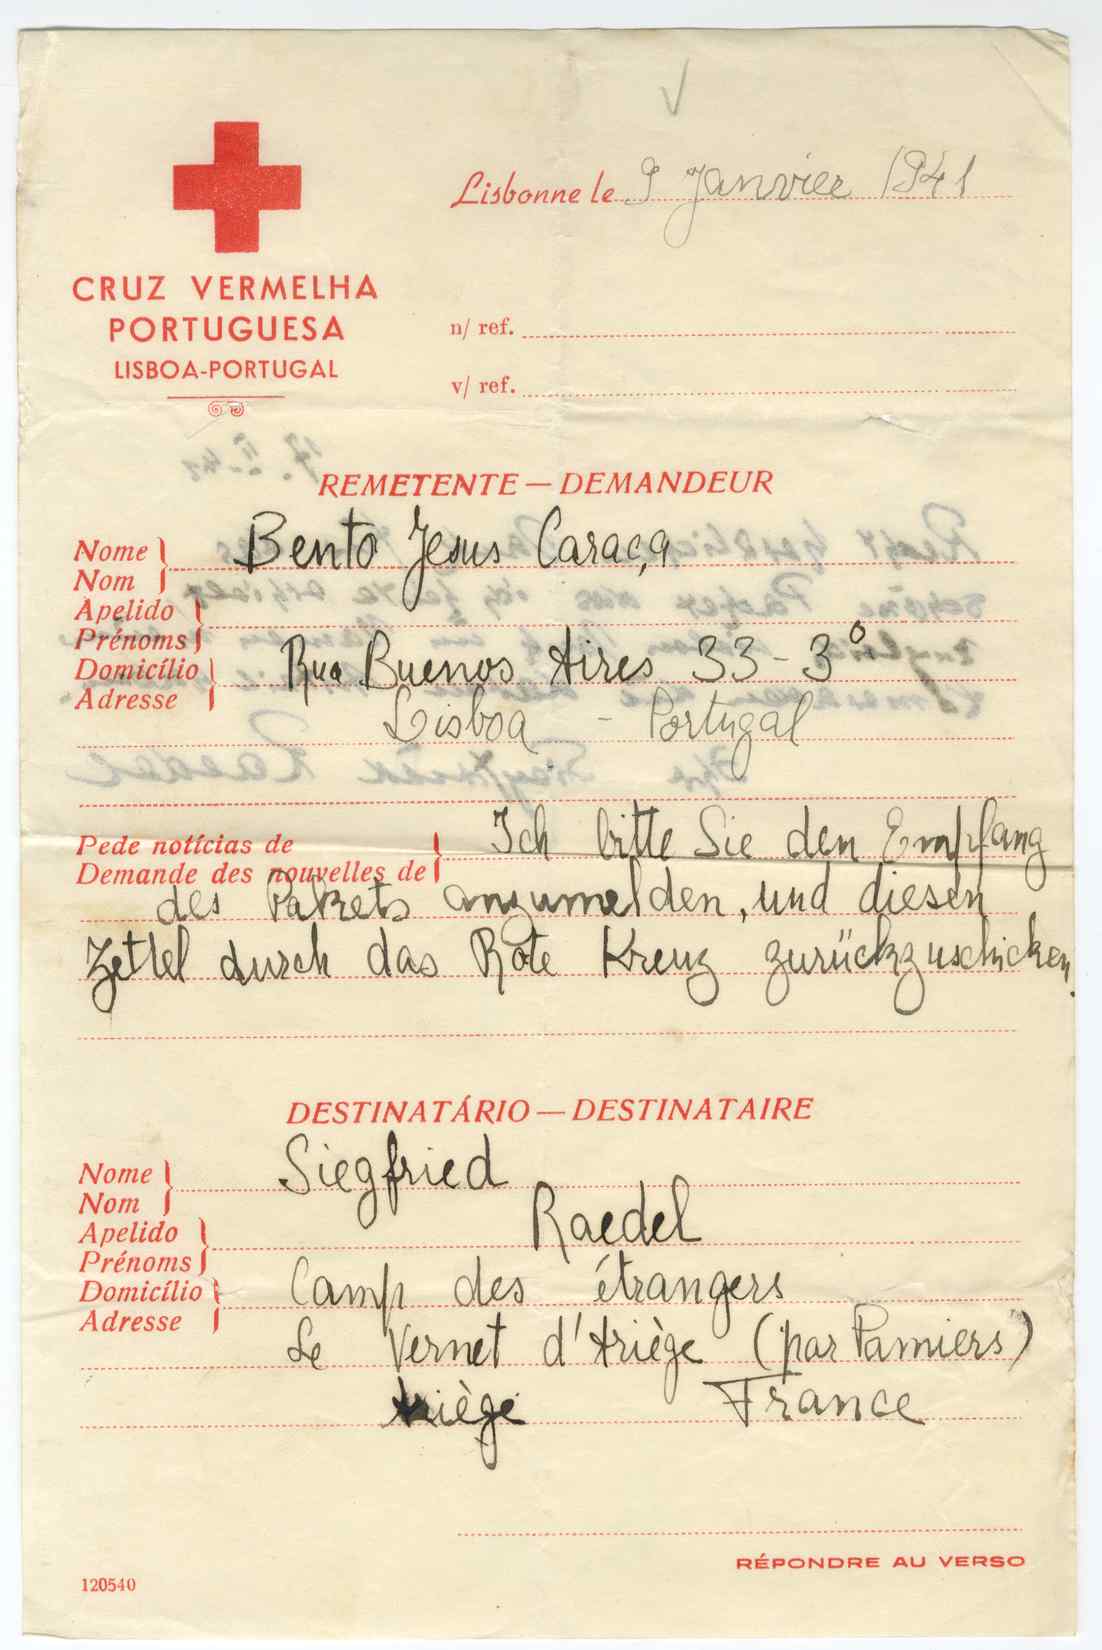 Lisbonne le 9 Janvier 1941
CRUZ VERMELHA
PORTUGUESA
LISBOA-PORTUGAL
n/ ref.
v/ ref.
17. II. 41
REMETENTE — DEMANDEUR
Nome
Nom
Bento Jesus Caraça
Apelido
Prénoms
Domicílio
Adresse
Rua Buenos Aires 33-3º
Lisboa - Portugal
Siegfried Raedel
Pede notícias de
Demande des nouvelles de
Ich bitte Sie den Empfang
des Pakets anzumelden, und diesen
Zettel durch das Rote Kreuz zurückzuschicken.
DESTINATÁRIO — DESTINATAIRE
Nome
Nom
Siegfried
Apelido
Prénoms
Raedel
Domicílio
Adresse
Camp des étrangers
Le Vernet d'Ariège (par Pamiers)
Ariège France
RÉPONDRE AU VERSO
120540